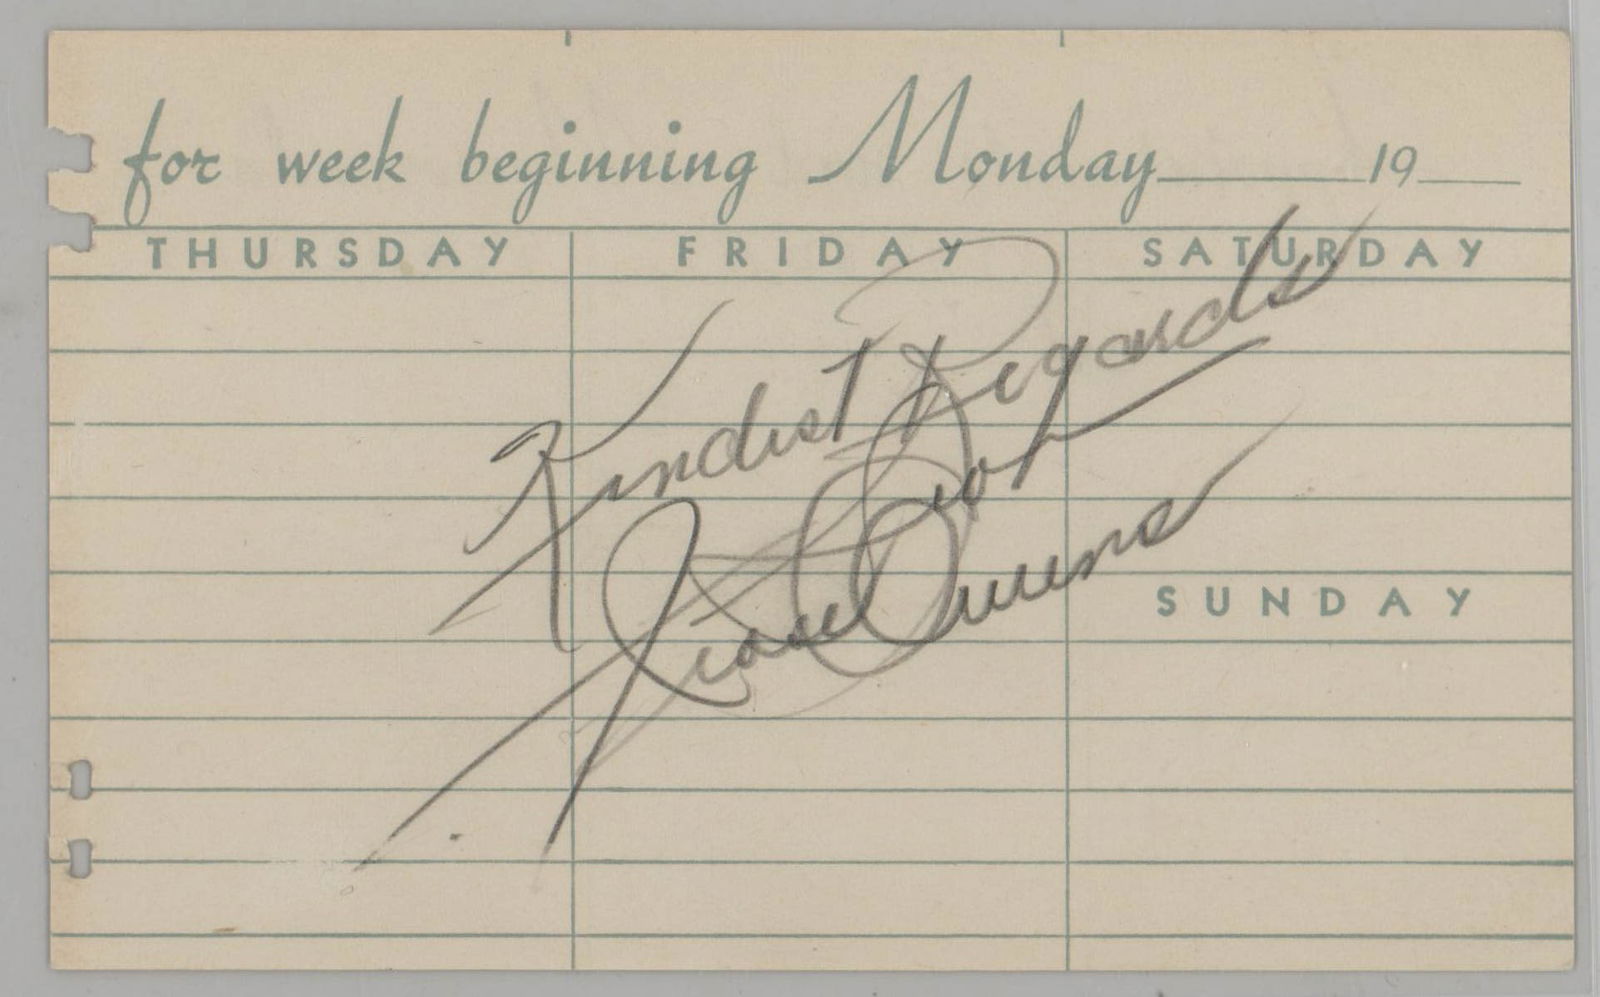 for week beginning Monday 19
THURSDAY FRIDAY SATURDAY
Kindest Regards
Owens
SUNDAY